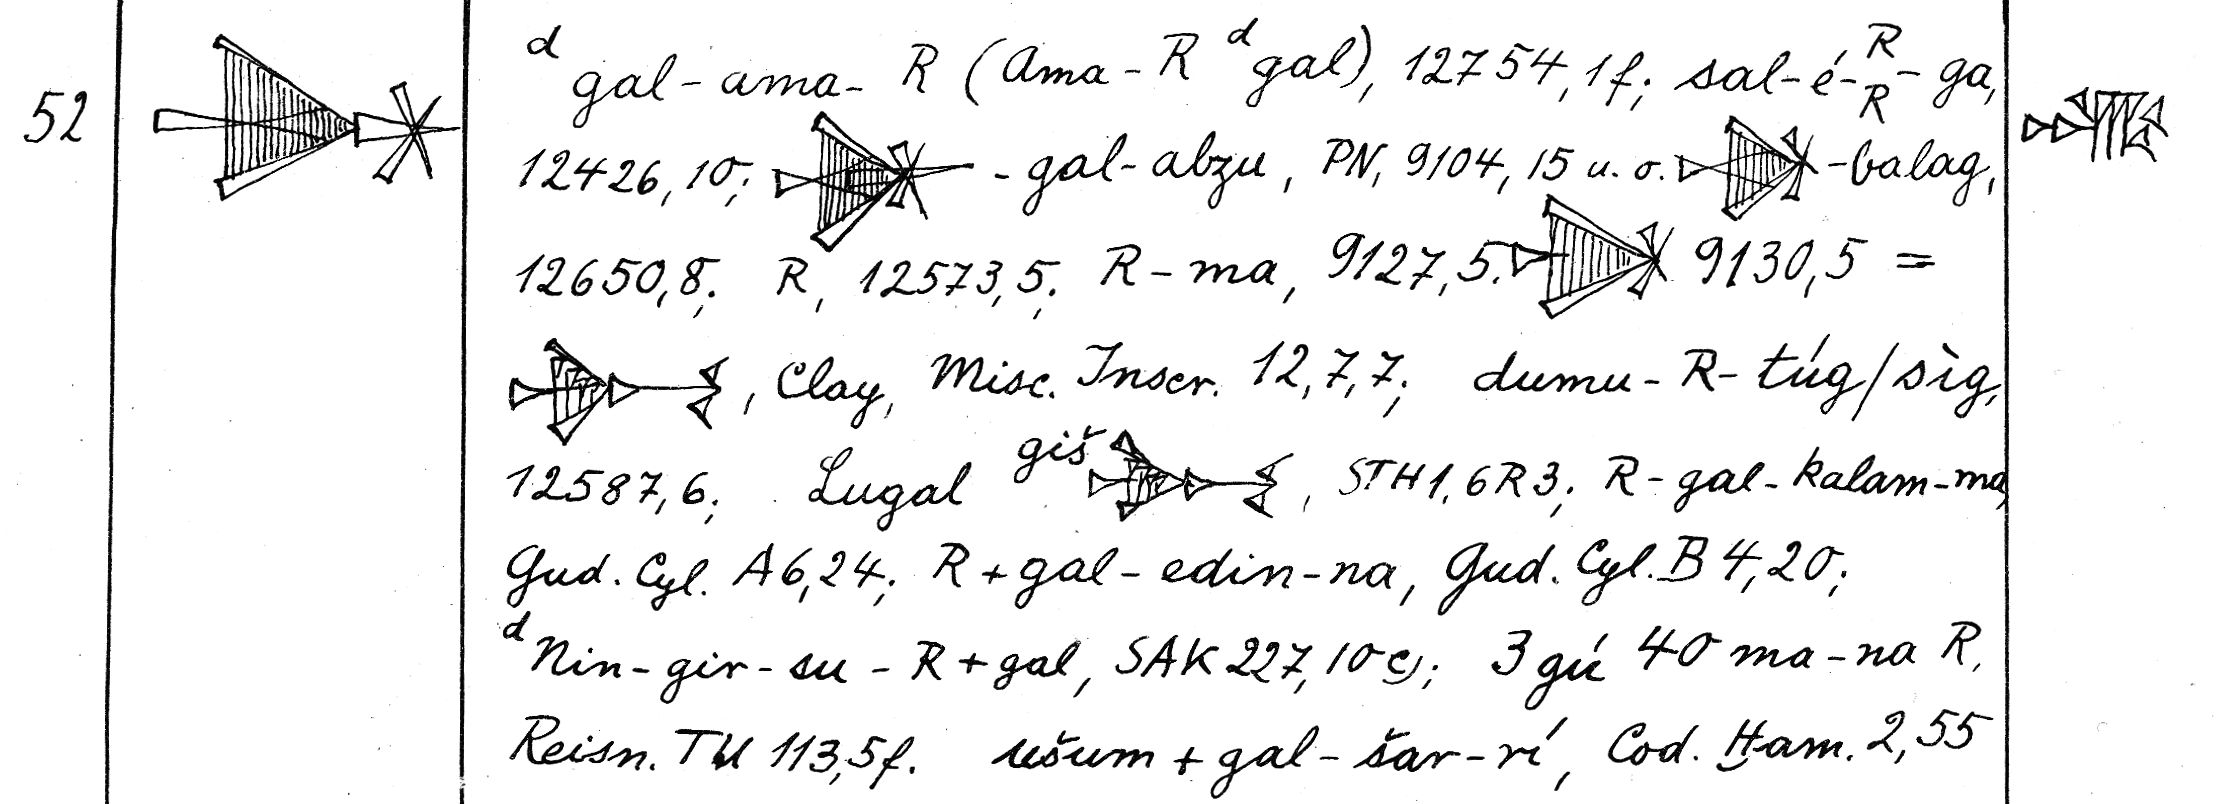 52
d gal-ama- R (Ama-R d gal), 12754,1f; sal-é-R/R-ga,
12426,10; -gal-abzu, PN, 9104,15 u. o. -balag,
12650,8; R, 12573,5; R-ma, 9127,5. 9130,5 =
, Clay, Misc. Inscr. 12,7,7; dumu-R-túg/sìg,
12587,6; Lugal giš , STH1,6R3; R-gal-kalam-ma,
Gud. Cyl. A6,24; R+gal-edin-na, Gud. Cyl. B 4,20;
d Nin-gir-su-R+gal, SAK 227,10 c); 3 gú 40 ma-na R.
Reisn. TU 113,5f. ušum+gal-šar-rí, Cod. Ham. 2,55